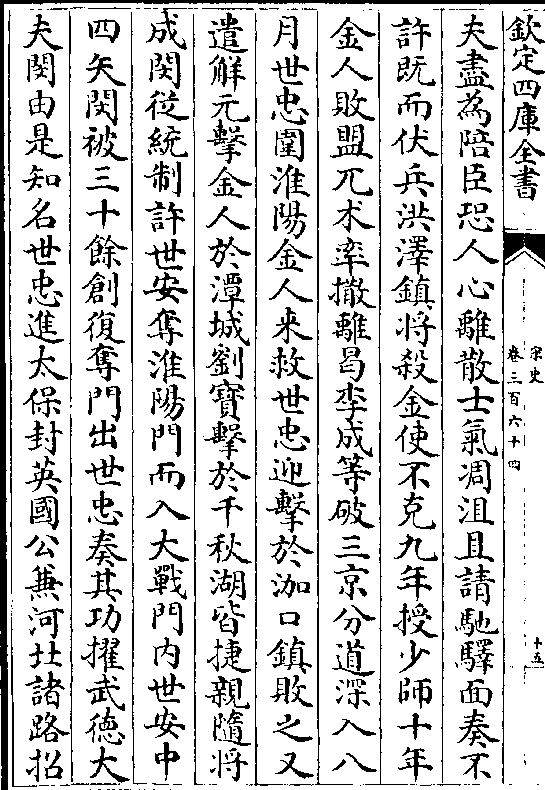 欽定四庫全書
宋史
卷三百六十四
十五
夫盡為陪臣恐人心離散士氣凋沮且請馳驛面奏不
許既而伏兵洪澤鎮將殺金使不克九年授少師十年
金人敗盟兀术率撒離曷李成等破三京分道深入八
月世忠圍淮陽金人来救世忠迎擊於泇口鎮敗之又
遣解元擊金人於潭城劉寶擊於千秋湖皆捷親隨將
成閔從統制許世安奪淮陽門而入大戰門内世安中
四矢閔被三十餘創復奪門出世忠奏其功擢武德大
夫閔由是知名世忠進太保封英國公兼河北諸路招